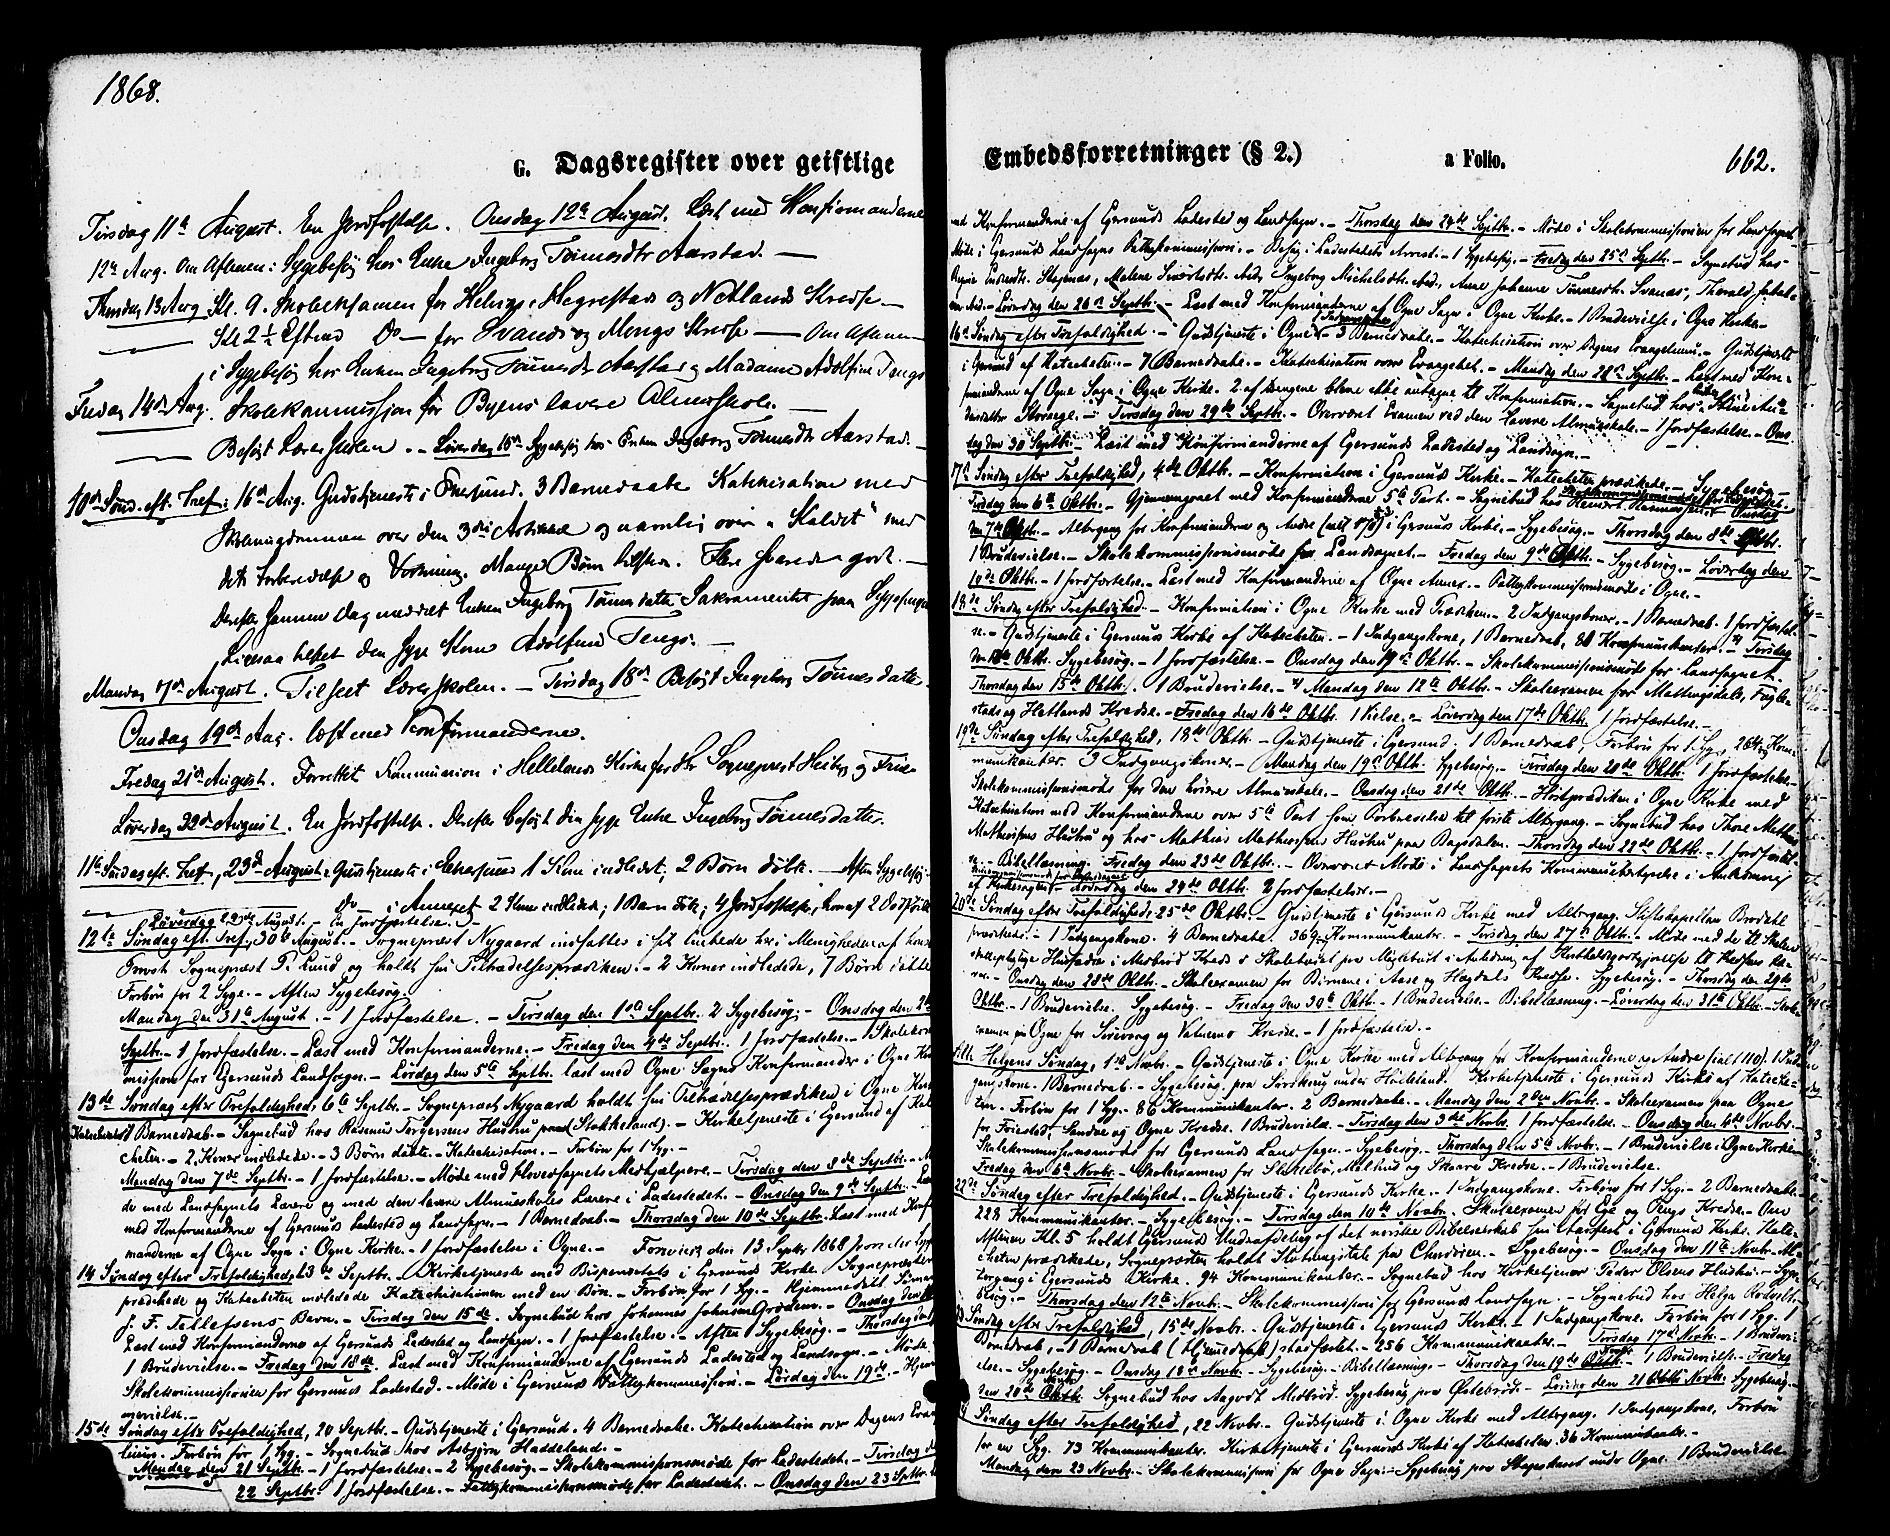 1868.
G. Dagsregister over geistlige
Tirsdag 11te August. En Jordfæstelse. Onsdag 12te August. Læst med Konfirmanderne
12te Aug. Om Aftenen: Sygebesøg hos Enke Ingeborg Tønnesdtr Aarstad. —
Thorsdag 13 Aug Kl. 9. Skoleexamen for Helvigs, Hegrestads og Netlands Kredse —
Kl 2½ Efterm Do — for Svanes og Mongs Kredse — Om Aftenen
i Sygebesøg hos Enken Ingeborg Tønnesdtr Aarstad og Madame Adolfine Tengs
Fredag 14de Aug. Skolekommission for Byens lavere Almueskole. —
Besøgt Lærerskolen. — Løverdag 15de Sygebesøg hos Enken Ingeborg Tønnesdtr Aarstad. —
10de Sønd. eft. Tref: 16de Aug. Gudstjeneste i Ekersund. 3 Barnedaab Katekisation med
Skoleungdommen over den 3die Artikkel og navnlig over "Kaldet" med
dets Forberedelse og Virkning. Mange Børn tilstede. Flere svarede godt. —
Derefter samme Dag meddelt Enken Ingeborg Tønnesdatter Sakramentet paa Sygesengen
Ligesaa den syge Kone Adolfine Tengs. —
Mandag 17de August. Tilseet Lærerskolen. — Tirsdag 18de Besøgt Ingeborg Tønnesdatter
Onsdag 19de Aug. læst med Konfirmanderne.
Fredag 21de August. Forrettet Kommunion i Hellelands Kirke for Hr Sogneprest
Løverdag 22de August. En Jordfæstelse. Derefter besøgt den syge Enke Ingeborg Tønnesdatter.
11te Søndag eft. Tref, 23de August. Gudstjeneste i Ekersund 1 Kone indledet; 2 Børn døbte. — Aften Sygebesøg
Do — i Annexet 2 Koner indledede; 1 Barn døbt; 4 Jordfæstelse, hvoraf 2
Løverdag 29de August. — En Jordfæstelse. —
12te Søndag eft. Tref, 30te August. — Sogneprest Nygaard indsattes i sit Embede her i Menigheden af
Provst Sogneprest Lund og holdt sin Tiltrædelsesprædiken. — 2 Koner indledede, 7 Børn døbte
Forbøn for 2 Syge. — Aften Sygebesøg.
Mandag den 31te August. — 1 Jordfæstelse. — Tirsdag den 1ste Septbr. 2 Sygebesøg. — Onsdag den 2de
Septbr. — 1 Jordfæstelse. — Læst med Konfirmanderne. — Fredag den 4de Septbr. 1 Jordfæstelse. — 1 Skolekom
mission for Egersunds Landsogn. — Lørdag den 5te Septbr. læst med Ogne Sogns Konfirmander i Ogne Kir
13de Søndag efter Trefoldighed, 6te Septbr. — Sogneprest Nygaard holdt sin Tiltrædelsesprædiken i Ogne Kirke
1 Barnedaab. — Sognebud hos Rasmus Torgersens Hustru (Stokkeland). — Kirketjeneste i Egersund af Kate
cheten. — 2 Koner indledede. — 3 Børn døbte. — Katechisation. — Forbøn for 1 Syg. —
Mandag den 7de Septbr. — 1 Jordfæstelse. — Møde med Hovedsognets Medhjælpere. — Tirsdag den 8de Septbr. — Mø
de med Landsognets Lærere og med den lavere Almueskoles Lærere i Ladestedet. — Onsdag den 9de Septbr. Læst
med Konfirmanderne af Egersunds Ladested og Landsogn. — 1 Barnedaab. — Thorsdag den 10de Septbr. Læst med Konfir
manderne af Ogne Sogn i Ogne Kirke. — 1 Jordfæstelse i Ogne. — Forevist den 13 Septbr 1868
14 Søndag efter Trefoldighed, 13de Septbr. — Kirketjeneste med Bispevisitats i Egersunds Kirke. Sognepresten
prædikede og Katecheten indledede Katechisationen med en Bøn. — Forbøn for 1 Syg. — Hjemmedøbt
J. F. Tollefsens Barn. — Tirsdag den 15de. Sognebud hos Johannes Johnsen Grødem. — Onsdag den
Læst med Konfirmanderne af Egersunds Ladested og Landsogn. — 1 Jordfæstelse. — Aften Sygebesøg. — Thorsdag den
1 Brudevielse. — Fredag den 18de. Læst med Konfirmanderne af Egersunds Ladested og Landsogn. — Møde
Skolekommissionen for Egersunds Ladested. — Møde i Egersunds Fattigkommission. — Lørdag den 19de. —
15de Søndag eftr Trefoldighed, 20 Septbr. — Gudstjeneste i Egersund. 4 Barnedaabe. Katechisation over Dagens Evan
lium. — Forbøn for 1 Syg. — Sognebud hos Asbjørn Haddeland. —
Mandag den 21 Septbr. — 1 Jordfæstelse. — 2 Sygebesøg. — Skolekommissionsmøde for Ladestedet. — Tirsdag d
22 Septbr. 1 Jordfæstelse. — Fattigkommissionsmøde for Ladestedet. — Onsdag den 23 Septbr
Embedsforretninger (§ 2.) a Folio. 662.
Konfirmanderne af Egersunds Ladested og Landsogn. — Thorsdag den 24de Septbr. — Møde i Skolekommissionen for Landsognet
Møde i Egersunds Landsogns Fattigkommission. — Besøg i Ladestedets Arrest. — 1 Sygebesøg. — Fredag den 25de Septbr. — Sognebud hos
Løverdag den 26de Septbr. — Læst med Konfirmanderne af Ogne Sogn i Ogne Kirke. — 1 Brudevielse i Ogne Kirke. —
16de Søndag efter Trefoldighed. — Gudstjeneste i Ogne. 3 Barnedaabe. — Katechisation over Dagens Evangelium. — Gudstjeneste
i Egersund af Katecheten. — 7 Barnedaabe. — Katechisation over Evangeliet. — Mandag den 28de Septbr. — Læst med Kon-
firmanderne af Ogne Sogn i Ogne Kirke. 2 af Drengene bleve ikke antagne til Konfirmation. — Sognebud hos
Tirsdag den 29de Septbr. — Overværet Examen ved den Lavere Almueskole. — 1 Jordfæstelse. — Ons
dag den 30 Septbr. — Læst med Konfirmanderne af Egersunds Ladested og Landsogn. —
17de Søndag efter Trefoldighed, 4de Oktbr. — Konfirmation i Egersunds Kirke. — Katecheten prædikede. — Sygebesøg. —
Tirsdag den 6te Oktbr. — Gjennemgaaet med Konfirmanderne 5te Part. — Sognebud hos — Onsdag
den 7de Oktbr. — Altergang for Konfirmanderne og Andre i Egersunds Kirke. — Sygebesøg. — Thorsdag den 8de Oktbr.
1 Brudevielse. — Skolekommissionsmøde for Landsognet. — Fredag den 9de Oktbr. — Sygebesøg. — Løverdag den
10de Oktbr. — 1 Jordfæstelse. — Læst med Konfirmanderne af Ogne Annex. — Fattigkommissionsmøde i Ogne. —
18de Søndag efter Trefoldighed. — Konfirmation i Ogne Kirke med Prædiken. — 2 Indgangskoner. — 1 Barnedaab. 1 Jordfæstel-
se. — Gudstjeneste i Egersunds Kirke af Katecheten. — 1 Indgangskone, 1 Barnedaab, 80 Kommunikanter. — Tirsdag
den 13de Oktbr. Sygebesøg. — 1 Jordfæstelse. — Onsdag den 14de Oktbr. — Skolekommissionsmøde for Landsognet. —
Thorsdag den 15de Oktbr. 1 Brudevielse. — Mandag den 12te Oktbr. — Skoleexamen for Mattingsdals, Fugle-
stads og Hetlands Kredse. — Fredag den 16de Oktbr. 1 Vielse. — Løverdag den 17de Oktbr. 1 Jordfæstelse. —
19de Søndag efter Trefoldighed, 18de Oktbr. — Gudstjeneste i Egersund. 1 Barnedaab, Forbøn for 1 Syg, Kom-
munikanter. 3 Indgangskoner. — Mandag den 19de Oktbr. Sygebesøg. — Tirsdag den 20de Oktbr. 1 Jordfæstelse. —
Skolekommissionsmøde for den lavere Almueskole. — Onsdag den 21de Oktbr. — Høstprædiken i Ogne Kirke med
Katechisation med Konfirmanderne over 5te Part som Forberedelse til første Altergang. — Sognebud hos Thore
Mathiesens Hustru og hos Mathias Mathiesens Hustru paa Bagdalen. — Thorsdag den 22de Oktbr. — 1 Jordfæstel-
se. — Bibellæsning. Fredag den 23de Oktbr. — Overværet Møde i Landsognets Kommunebestyrelse i Anledning
af — Løverdag den 24de Oktbr. 2 Jordfæstelser. —
20de Søndag efter Trefoldighed, 25de Oktbr. — Gudstjeneste i Egersunds Kirke med Altergang. Stiftskapellan Brodahl
prædikede. — 1 Indgangskone. 4 Barnedaabe. 369 Kommunikanter. — Tirsdag den 27de Oktbr. — Møde med de til Skolen
Onsdag den 28de Oktbr. — Skoleexamen for Børnene i Aase og Hægdals Kredse. Sygebesøg. — Thorsdag den 29de
Oktbr. — 1 Brudevielse. Sygebesøg. — Fredag den 30te Oktbr. — 1 Brudevielse. — Bibellæsning. — Løverdag den 31te Oktbr. — Skole
examen paa Ogne for Sirevaag og Vatnemo Kredse. — 1 Jordfæstelse. —
Alle Helgens Søndag, 1ste Novbr. — Gudstjeneste i Ogne Kirke med Altergang for Konfirmanderne og Andre (ialt 110). 1 Ind-
gangskone. — 1 Barnedaab. — Sygebesøg paa under Høileland. Kirketjeneste i Egersunds Kirke af Kateche-
ten. — Forbøn for 1 Syg. — 86 Kommunikanter. 2 Barnedaabe. — Mandag den 2den Novbr. — Skoleexamen paa Ogne
for Friestad, og Ogne Kredse. 1 Brudevielse. — Tirsdag den 3de Novbr. 1 Jordfæstelse. — Onsdag den 4de Novbr.
Skolekommissionsmøde for Egersunds Landsogn. — Sygebesøg. — Thorsdag den 5te Novbr. — 1 Brudevielse i Ogne Kirke. —
Fredag den 6te Novbr. — Skoleexamen for Slettebø, og Skaare Kredse. — 1 Brudevielse.
22de Søndag efter Trefoldighed. — Gudstjeneste i Egersunds Kirke. — 1 Indgangskone. Forbøn for 1 Syg. — 2 Barnedaabe. —
228 Kommunikanter. — Sygebesøg. — Tirsdag den 10de Novbr. Skoleexamen for Ege og Tengs Kredse. — Om
Aftenen Kl. 5 holdt Egersunds Underafdeling af det norske Bibelselskab sin Aarsfest i Egersunds Kirke. Kate-
cheten prædikede, Sognepresten holdt Slutningstale fra Chordøren. — Sygebesøg. — Onsdag den 11te Novbr. Al-
tergang i Egersunds Kirke. 94 Kommunikanter. — Sognebud hos Kirketjener Peder Olsens Hustru. — Syge-
besøg. — Thorsdag den 12te Novbr. — Skolekommission for Egersunds Landsogn. — Sognebud hos Helge
Søndag efter Trefoldighed, 15de Novbr. — Gudstjeneste i Egersunds Kirke. — 1 Indgangskone. Forbøn for 1 Syg. 1
Barnedaab. — 1 Barnedaab (Hjemmedaab) stadfæstet. — 256 Kommunikanter. — Tirsdag 17de Novbr. — 1 Brudevi-
else. — Sygebesøg. — Onsdag 18de Novbr. — Sygebesøg. — Bibellæsning. — Thorsdag den 19de — 1 Brudevielse. — Fredag
den 20de Sognebud hos Aagodt Midbrød. Sygebesøg paa Østebrød. — Løverdag den 21de Novbr. Sygebesøg. —
Søndag efter Trefoldighed, 22 Novbr. — Gudstjeneste i Ogne Kirke med Altergang. 1 Indgangskone, Forbøn
for en Syg. 73 Kommunikanter. Kirketjeneste i Egersunds Kirke af Katecheten. 36 Kommunikanter. —
Mandag den 23 Novbr. — Skolekommission for Ogne Sogn. — Sygebesøg paa under Ogne. 1 Brudevielse